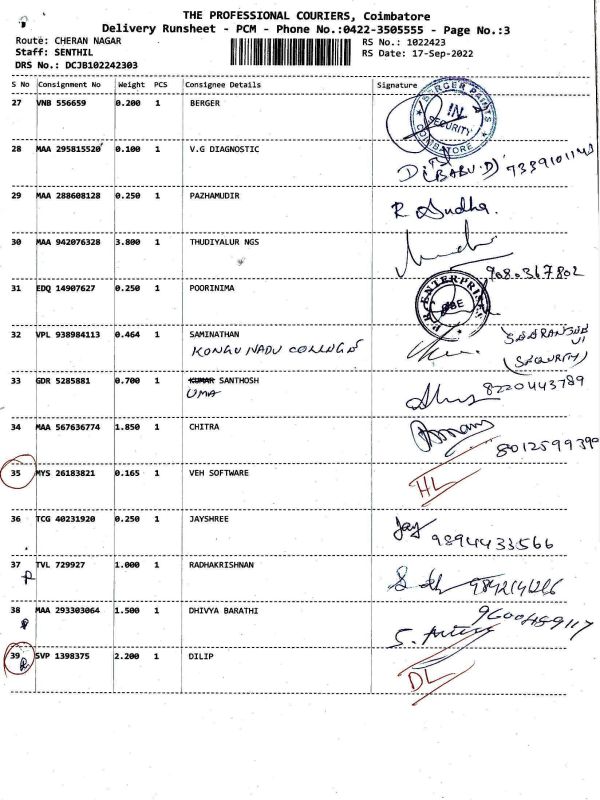 THE PROFESSIONAL COURIERS, Coimbatore
Delivery Runsheet - PCM - Phone No.:0422-3505555 - Page No.:3
Route: CHERAN NAGAR RS No.: 1022423
Staff: SENTHIL RS Date: 17-Sep-2022
DRS No.: DCJB102242303
S No Consignment No Weight PCS Consignee Details Signature
27 VNB 556659 0.200 1 BERGER
BERGER PAINTS IN SECURITY COIMBATORE
28 MAA 295815520 0.100 1 V.G DIAGNOSTIC
(BABU.D) 7339101143
29 MAA 288608128 0.250 1 PAZHAMUDIR R Sudha.
30 MAA 942076328 3.800 1 THUDIYALUR NGS
9080367802
31 EDQ 14907627 0.250 1 POORINIMA
ENTERPRISES
32 VPL 938984113 0.464 1 SAMINATHAN
KONGU NADU COLLEGE
(SECURITY)
33 GDR 5285881 0.700 1 KUMAR SANTHOSH
UMA 8220443789
34 MAA 567636774 1.850 1 CHITRA
8012599390
35 MYS 26183821 0.165 1 VEH SOFTWARE HL
36 TCG 40231920 0.250 1 JAYSHREE Jay
9894433566
37 TVL 729927 1.000 1 RADHAKRISHNAN
38 MAA 293303064 1.500 1 DHIVYA BARATHI
9600459117
39 SVP 1398375 2.200 1 DILIP DL